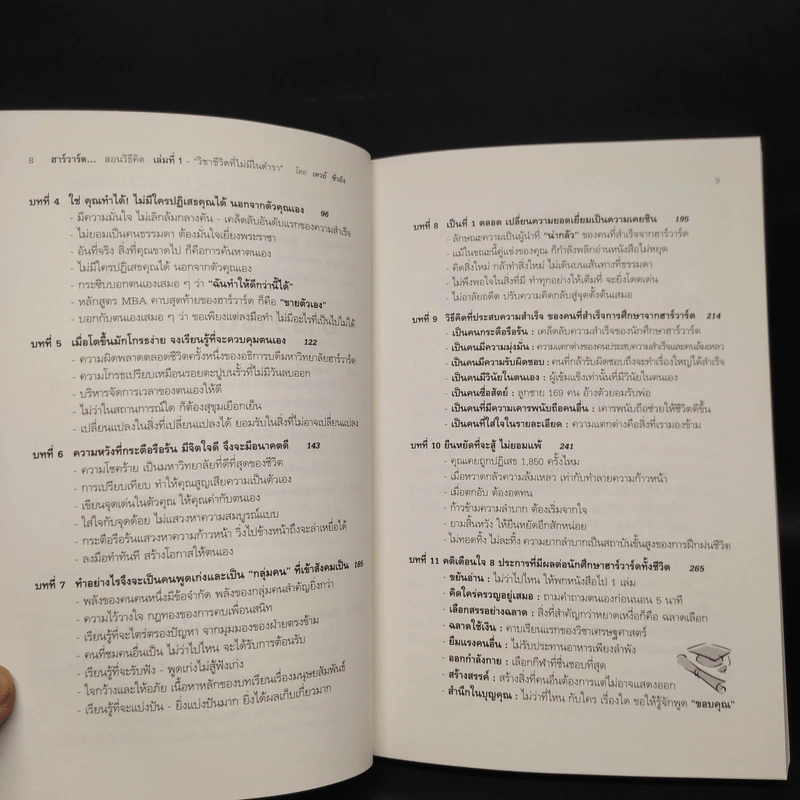 8 ฮาร์วาร์ด... สอนวิธีคิด เล่มที่ 1 - "วิชาชีวิตที่ไม่มีในตำรา" โดย เหวย์ ซิ่วอิง
บทที่ 4 ใช่ คุณทำได้! ไม่มีใครปฏิเสธคุณได้ นอกจากตัวคุณเอง 96
- มีความมั่นใจ ไม่เลิกล้มกลางคัน - เคล็ดลับอันดับแรกของความสำเร็จ
- ไม่ยอมเป็นคนธรรมดา ต้องมั่นใจเยี่ยงพระราชา
- อันที่จริง สิ่งที่คุณขาดไป ก็คือการค้นหาตนเอง
- ไม่มีใครปฏิเสธคุณได้ นอกจากตัวคุณเอง
- กระซิบบอกตนเองเสมอ ๆ ว่า "ฉันทำให้ดีกว่านี้ได้"
- หลักสูตร MBA คาบสุดท้ายของฮาร์วาร์ด ก็คือ "ขายตัวเอง"
- บอกกับตนเองเสมอ ๆ ว่า ขอเพียงแต่ลงมือทำ ไม่มีอะไรที่เป็นไปไม่ได้
บทที่ 5 เมื่อโตขึ้นมักโกรธง่าย จงเรียนรู้ที่จะควบคุมตนเอง 122
- ความผิดพลาดตลอดชีวิตครั้งหนึ่งของอธิการบดีมหาวิทยาลัยฮาร์วาร์ด
- ความโกรธเปรียบเหมือนรอยตะปูบนรั้วที่ไม่มีวันลบออก
- บริหารจัดการเวลาของตนเองให้ดี
- ไม่ว่าในสถานการณ์ใด ก็ต้องสุขุมเยือกเย็น
- เปลี่ยนแปลงในสิ่งที่เปลี่ยนแปลงได้ ยอมรับในสิ่งที่ไม่อาจเปลี่ยนแปลง
บทที่ 6 ความหวังที่กระตือรือร้น มีจิตใจดี จึงจะมีอนาคตดี 143
- ความโชคร้าย เป็นมหาวิทยาลัยที่ดีที่สุดของชีวิต
- การเปรียบเทียบ ทำให้คุณสูญเสียความเป็นตัวเอง
- เขียนจุดเด่นในตัวคุณ ให้คุณค่ากับตนเอง
- ใส่ใจกับจุดด้อย ไม่แสวงหาความสมบูรณ์แบบ
- กระตือรือร้นแสวงหาความก้าวหน้า วิ่งไปข้างหน้าถึงจะล่าเหยื่อได้
- ลงมือทำทันที สร้างโอกาสให้ตนเอง
บทที่ 7 ทำอย่างไรจึงจะเป็นคนพูดเก่งและเป็น "กลุ่มคน" ที่เข้าสังคมเป็น 165
- พลังของคนคนหนึ่งมีข้อจำกัด พลังของกลุ่มคนสำคัญยิ่งกว่า
- ความไว้วางใจ กฎทองของการคบเพื่อนสนิท
- เรียนรู้ที่จะไตร่ตรองปัญหา จากมุมมองของฝ่ายตรงข้าม
- คนที่ชมคนอื่นเป็น ไม่ว่าไปไหน จะได้รับการต้อนรับ
- เรียนรู้ที่จะรับฟัง - พูดเก่งไม่สู้ฟังเก่ง
- ใจกว้างและให้อภัย เนื้อหาหลักของบทเรียนเรื่องมนุษยสัมพันธ์
- เรียนรู้ที่จะแบ่งปัน - ยิ่งแบ่งปันมาก ยิ่งได้ผลเก็บเกี่ยวมาก
9
บทที่ 8 เป็นที่ 1 ตลอด เปลี่ยนความยอดเยี่ยมเป็นความเคยชิน 195
- ลักษณะความเป็นผู้นำที่ "น่ากลัว" ของคนที่สำเร็จจากฮาร์วาร์ด
- แม้ในขณะนี้คู่แข่งของคุณ ก็กำลังพลิกอ่านหนังสือไม่หยุด
- คิดสิ่งใหม่ กล้าทำสิ่งใหม่ ไม่เดินบนเส้นทางที่ธรรมดา
- ไม่พึงพอใจในสิ่งที่มี ทำทุกอย่างให้เต็มที่ จะยิ่งโดดเด่น
- ไม่อาลัยอดีต ปรับความคิดกลับสู่จุดตั้งต้นเสมอ
บทที่ 9 วิธีคิดที่ประสบความสำเร็จ ของคนที่สำเร็จการศึกษาจากฮาร์วาร์ด 214
- เป็นคนกระตือรือร้น : เคล็ดลับความสำเร็จของนักศึกษาฮาร์วาร์ด
- เป็นคนมีความมุ่งมั่น : ความแตกต่างของคนประสบความสำเร็จและคนล้มเหลว
- เป็นคนมีความรับผิดชอบ : คนที่กล้ารับผิดชอบถึงจะทำเรื่องใหญ่ได้สำเร็จ
- เป็นคนมีวินัยในตนเอง : ผู้เข้มแข็งเท่านั้นที่มีวินัยในตนเอง
- เป็นคนซื่อสัตย์ : ลูกชาย 169 คน อ้างตัวยอมรับพ่อ
- เป็นคนที่มีความเคารพนับถือคนอื่น : เคารพนับถือช่วยให้ชีวิตดีขึ้น
- เป็นคนที่ใส่ใจในรายละเอียด : ความแตกต่างคือสิ่งที่เรามองข้าม
บทที่ 10 ยืนหยัดที่จะสู้ ไม่ยอมแพ้ 241
- คุณเคยถูกปฏิเสธ 1,850 ครั้งไหม
- เมื่อหวาดกลัวความล้มเหลว เท่ากับทำลายความก้าวหน้า
- เมื่อตกอับ ต้องอดทน
- ก้าวข้ามความลำบาก ต้องเริ่มจากใจ
- ยามสิ้นหวัง ให้ยืนหยัดอีกสักหน่อย
- ไม่ทอดทิ้ง ไม่ละทิ้ง ความยากลำบากเป็นสถาบันชั้นสูงของการฝึกฝนชีวิต
บทที่ 11 คติเตือนใจ 8 ประการที่มีผลต่อนักศึกษาฮาร์วาร์ดทั้งชีวิต 265
- ขยันอ่าน : ไม่ว่าไปไหน ให้พกหนังสือไป 1 เล่ม
- คิดใคร่ครวญอยู่เสมอ : ถามคำถามตนเองก่อนนอน 5 นาที
- เลือกสรรอย่างฉลาด : สิ่งที่สำคัญกว่าหยาดเหงื่อก็คือ ฉลาดเลือก
- ฉลาดใช้เงิน : คาบเรียนแรกของวิชาเศรษฐศาสตร์
- ยืมแรงคนอื่น : ไม่รับประทานอาหารเพียงลำพัง
- ออกกำลังกาย : เลือกกีฬาที่ชื่นชอบที่สุด
- สร้างสรรค์ : สร้างสิ่งที่คนอื่นต้องการแต่ไม่อาจแสดงออก
- สำนึกในบุญคุณ : ไม่ว่าที่ไหน กับใคร เรื่องใด ขอให้รู้จักพูด "ขอบคุณ"